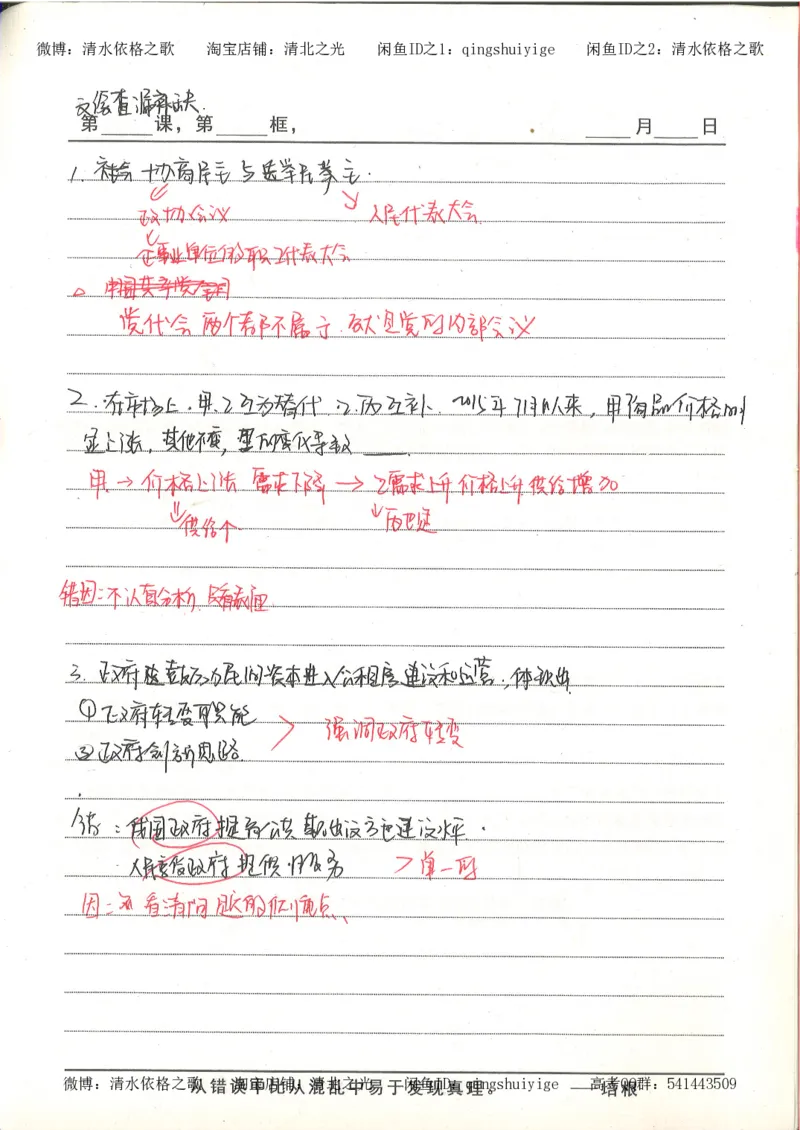 微博：清水依格之歌 淘宝店铺：清北之光 闲鱼ID之1：qingshuiyige 闲鱼ID之2：清水依格之歌
文综查漏补缺.
第 课，第 框， 月 日
1. 社会协商民主与选举民主.
政协会议 人民代表大会
企事业单位的职工代表大会
党代会 两个都不属于. 是党的内部会议
2. 在市场上.甲.乙互为替代.乙.丙互补. 2015年7月以来，甲商品价格明
显上涨，其他不变，变化导致
甲.→价格上涨 需求下降→乙需求上升 价格上升 供给增加
供给个 丙也是
错因：不认真分析，没有梳理
3. 政府鼓励民间资本进入公租房建设和运营，体现出
①政府转变职能 强调政府转变
②政府创新思路.
错：我国政府提高公共 建设水平.
政府提供的服务 >单一的
因：没看清问题的侧重点、
微博：清水依格之歌 淘宝店铺：清北之光 闲鱼ID：qingshuiyige 高考QQ群：541443509
从错误中比从混乱中易于发现真理。 ——培根